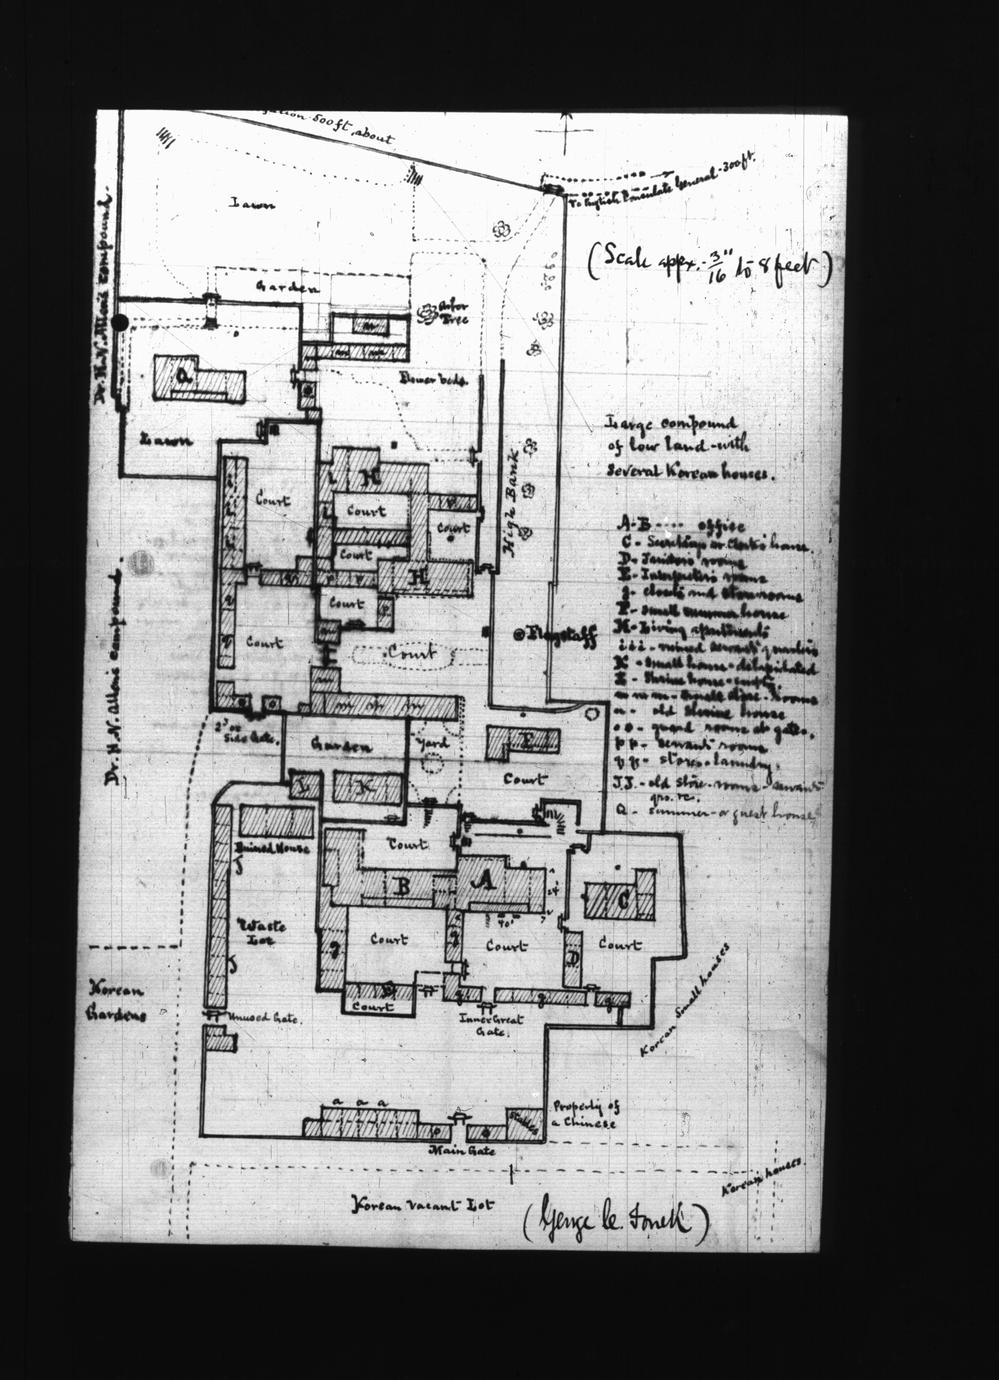 500 ft, about
To English Consulate General - 300 ft.
Lawn
(Scale appx. - 3/16" to 8 feet)
Garden
Arbor
Tree
Dr. H. N. Allen's compound.
Q
Flower beds.
Lawn
Large compound
of low land - with
several Korean houses.
H
Court
Court
Court
High Bank
Court
H
A-B ---- office
C - Secretary's or Clerk's house
D - Janitor's rooms
E - Interpreter's rooms
g - closets and storerooms
F - small summer house
H - Living apartments
i i i - ruined servants' quarters
K - Small house - dilapidated
m m m - 
n - old Shrine house
o o - guard rooms at gates.
p p - servants' rooms
stores - laundry.
J J - old store-rooms - servants'
qrs. &c.
Q - Summer- or guest house
Court
Court
Flagstaff
Court
m m m
Dr. H. N. Allen's compound.
2nd or
Side Gate.
Garden
Yard
E
Court
K
Ruined House
J
Court
B
A
C
40'
Waste
Lot
g
Court
g
Court
D
Court
J
Korean
Gardens
Court
g
g
Unused Gate.
Inner Great
Gate.
Korean Small houses
a a a
Stables
Property of
a Chinese
Main Gate
Korean houses.
Korean Vacant Lot